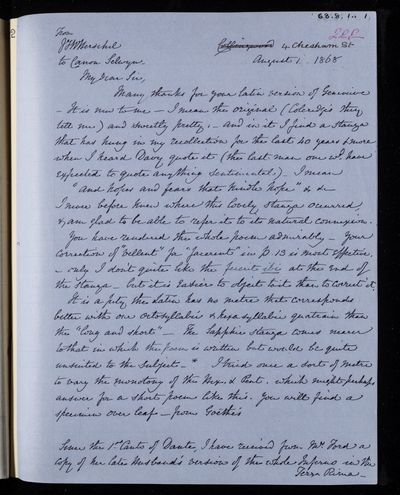 68.8.1. 1
2
From
J F W Herschel
to Canon Selwyn.
L.R.R.
Collingwood 4 Chesham St
August 1. 1868
My dear Sir,
Many thanks for your Latin version of Genevieve
- It is new to me - I mean the original (Coleridge's they
tell me) and sweetly pretty. - And in it I find a Stanza
that has hung in my recollection for the last 40 years & more
when I heard Davy quote it (the last man one wd. have
expected to quote anything sentimental.) - I mean
"And hopes and fears that kindle hope" &c &c
I never before knew where this lovely Stanza occurred
& am glad to be able to refer it to its natural connexion.
You have rendered the whole poem admirably - your
correction of "vellent" for "jacerent" in p 13 is most effective.
- only I don't quite like the fuerit ibi at the end of
the Stanza - but it is Easier to object to it than to correct it.
It is a pity the Latin has no metre that corresponds
better with our octosyllabic & hexasyllabic quatrain than
the "long and short" - The Sapphic stanza comes nearer
to that in which the poem is written but would be quite
unsuited to the Subject. - * I tried once a sort of metre
to vary the monotony of the Hex. & Pent. which might perhaps
answer for a short poem like this. You will find a
specimen over leaf - from Goëthe's
Since the 1st Canto of Dante, I have received from Mrs Ford a
copy of her late Husband's version of the whole Inferno in the
Terza Rima -